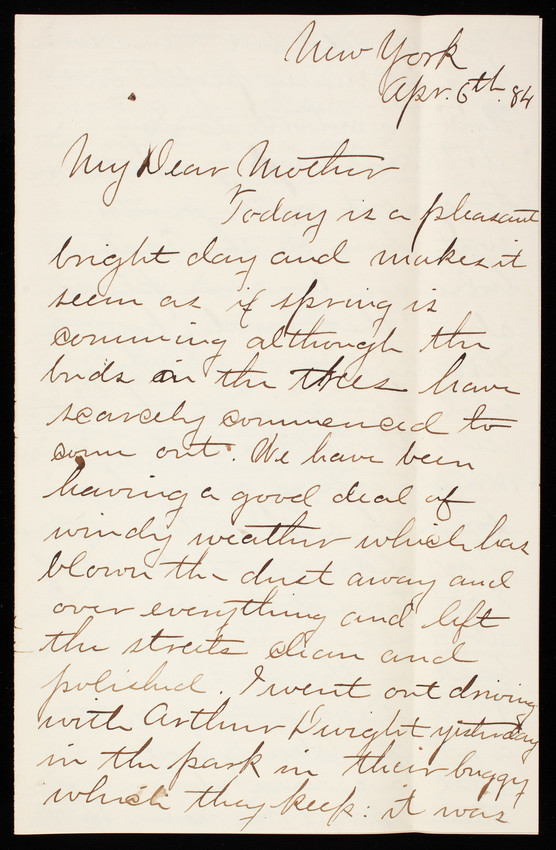 New York
Apr. 6th. 84
My Dear Mother
Today is a pleasant
bright day and makes it
seem as if spring is
comming although the
buds on the trees have
scarcely commenced to
come out. We have been
having a good deal of
windy weather which has
blown the dust away and
over everything and left
the streets clean and
polished. I went out driving
with Arthur Dwight yesterday
in the park in their buggy
which they keep: it was